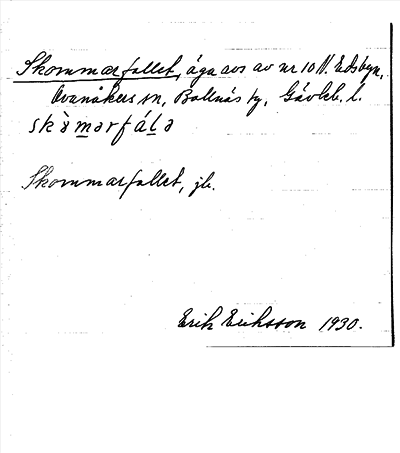 Skommarfallet, äga avs av nr 10 N. Edsbyn,
Ovanåkers sn, Bollnäs tg, Gävleb. l.
skàmarfála
Skommarfallet, jb.
Erik Eriksson 1930.